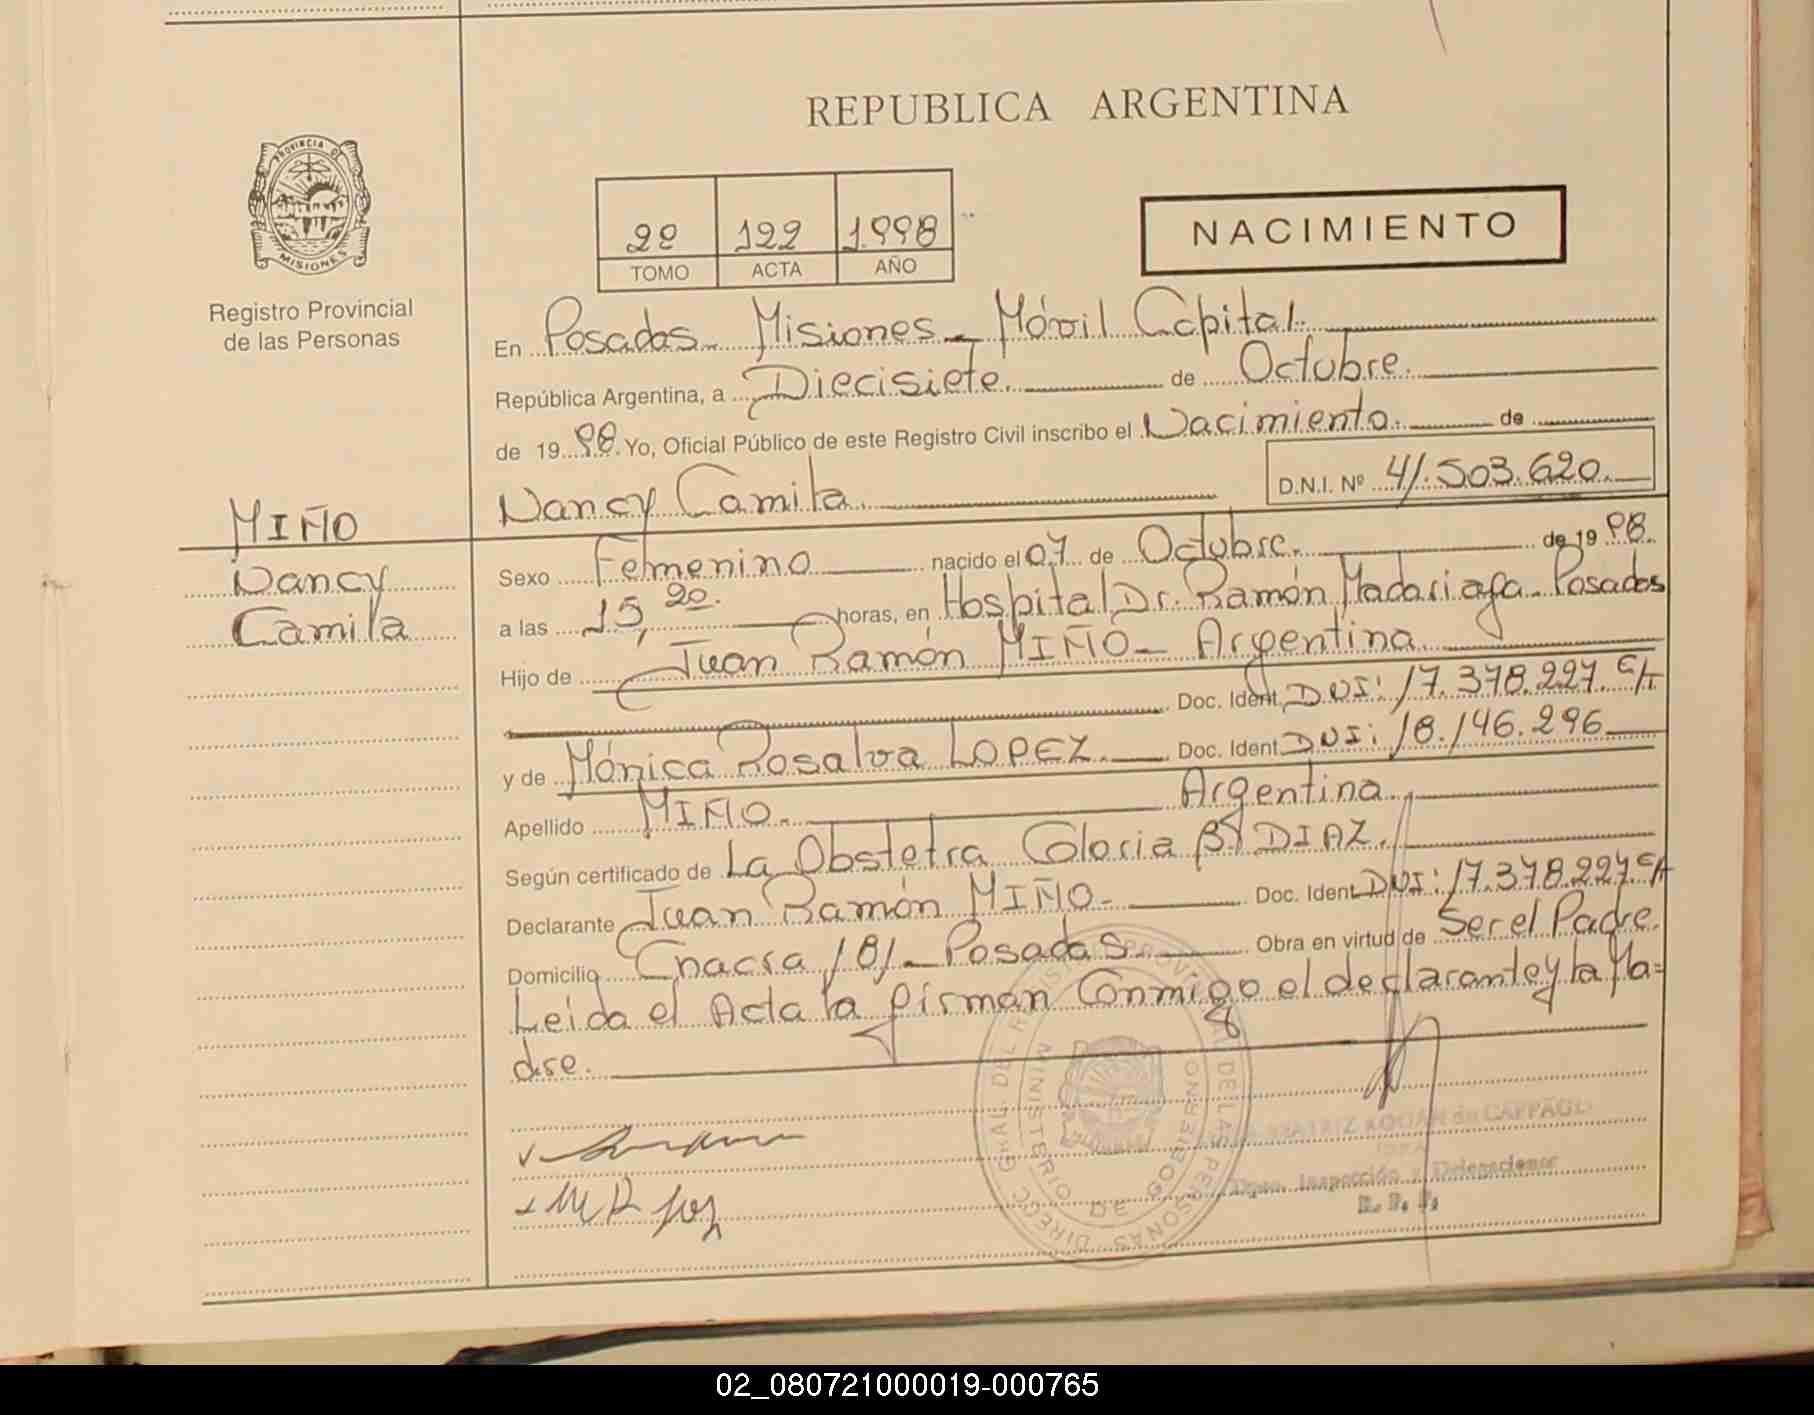 REPUBLICA ARGENTINA
PROVINCIA DE
MISIONES
Registro Provincial
de las Personas
2º 122 1.998
TOMO ACTA AÑO
NACIMIENTO
En Posadas - Misiones - Móvil Capital.
República Argentina, a Diecisiete. de Octubre.
de 19 98. Yo, Oficial Público de este Registro Civil inscribo el Nacimiento. de
Nancy Camila. D.N.I. Nº 41.503.620.
MIÑO
Nancy
Camila
Sexo Femenino nacido el 07 de Octubre. de 19 98.
a las 15,20. horas, en Hospital Dr. Ramón Madariaga - Posadas
Hijo de Juan Ramón MIÑO - Argentina.
Doc. Ident. DNI: 17.378.227. C/T
y de Mónica Rosalva LOPEZ. Doc. Ident. DNI: 18.146.296
Argentina.
Apellido MIÑO.
Según certificado de La Obstetra Gloria B. DIAZ.
Declarante Juan Ramón MIÑO - Doc. Ident. DNI: 17.378.227 C/T
Domicilio Chacra 181 - Posadas. Obra en virtud de Ser el Padre.
Leida el Acta la firman Conmigo el declarante y la Ma=
dre.
M R Lopez
DIREC. GRAL. DEL REGISTRO PROVINCIAL DE LAS PERSONAS
MINISTERIO DE GOBIERNO
de CAPPAGLI
Dpto. Inspección y Delegaciones
R. P. P.
02_080721000019-000765